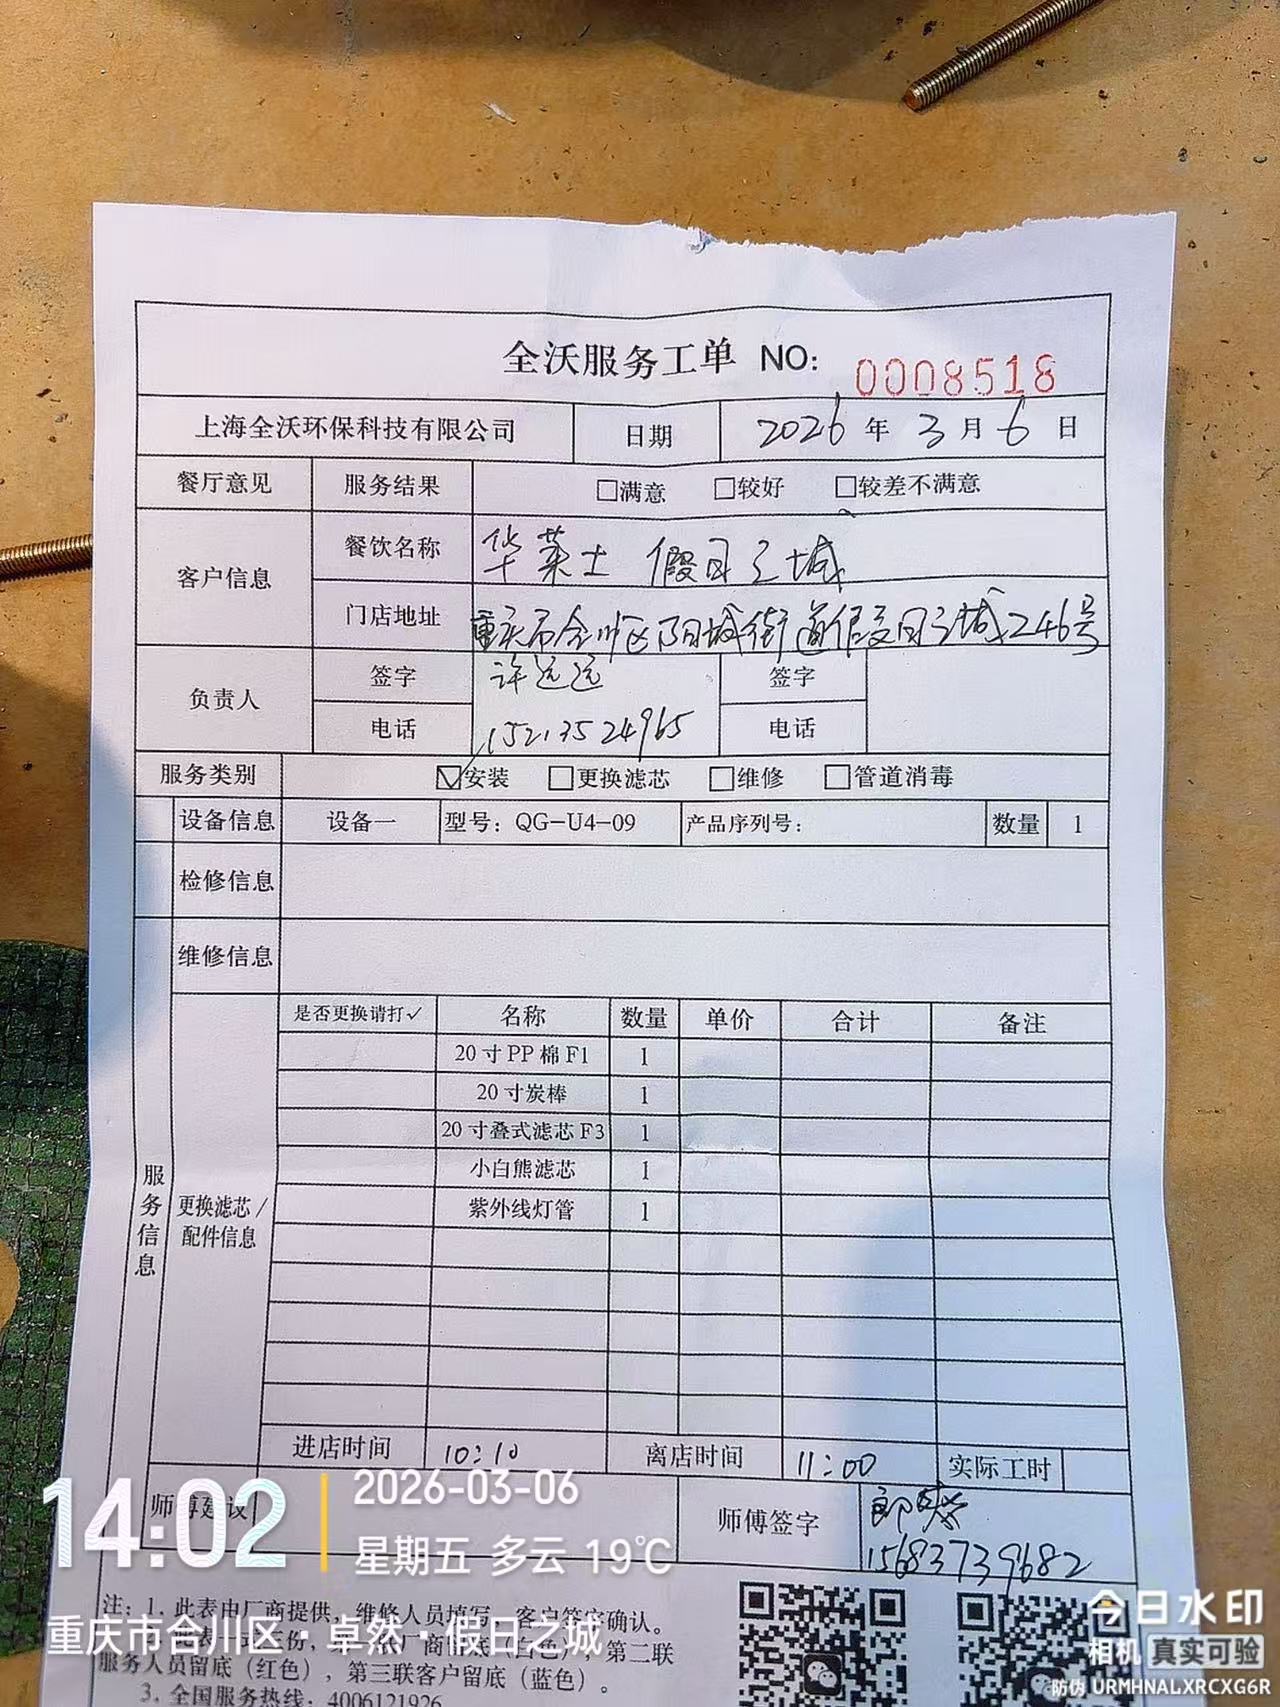 全沃服务工单 NO: 0008518
上海全沃环保科技有限公司 日期 2026年3月6日
餐厅意见 服务结果 □满意 □较好 □较差不满意
客户信息 餐饮名称 华莱士 假日之城
门店地址 重庆市合川区阳城街道假日之城246号
负责人 签字 许远远 签字
电话 15213524965 电话
服务类别 ☑安装 □更换滤芯 □维修 □管道消毒
设备信息 设备一 型号：QG-U4-09 产品序列号： 数量 1
检修信息
维修信息
服务信息
更换滤芯/配件信息
是否更换请打✓ 名称 数量 单价 合计 备注
20寸PP棉F1 1
20寸炭棒 1
20寸叠式滤芯F3 1
小白熊滤芯 1
紫外线灯管 1
进店时间 10:10 离店时间 11:00 实际工时
师傅建议 师傅签字 郎
15683739682
注：1. 此表由厂商提供，维修人员填写，客户签字确认。
份，厂商留底（白色），第二联
服务人员留底（红色），第三联客户留底（蓝色）。
3. 全国服务热线：4006121926
14:02 2026-03-06
星期五 多云 19℃
重庆市合川区·卓然·假日之城
今日水印
相机 真实可验
防伪 URMHNALXRCXG6R